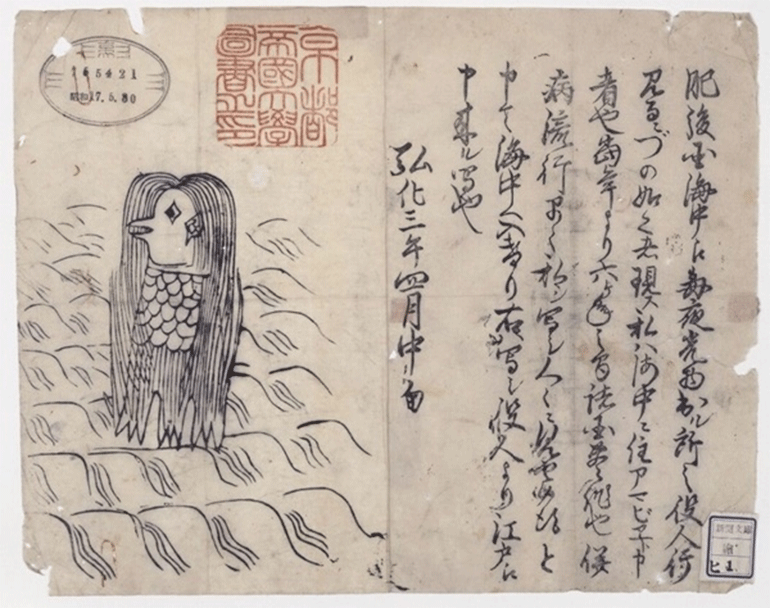 肥後国海中え毎夜光物出ル所之役人行
見るニづの如く者現ス私ハ海中ニ住アマビヱト申
者也當年より六ヶ年之間諸国豊作也併
病流行早々私シ写シ人々ニ見セ候得と
申て海中へ入けり右写シ役人より江戸え
申来ル写也
弘化三年四月中旬
京都
帝國大學
圖書之印
165421
昭和17.5.30
ヒ 1